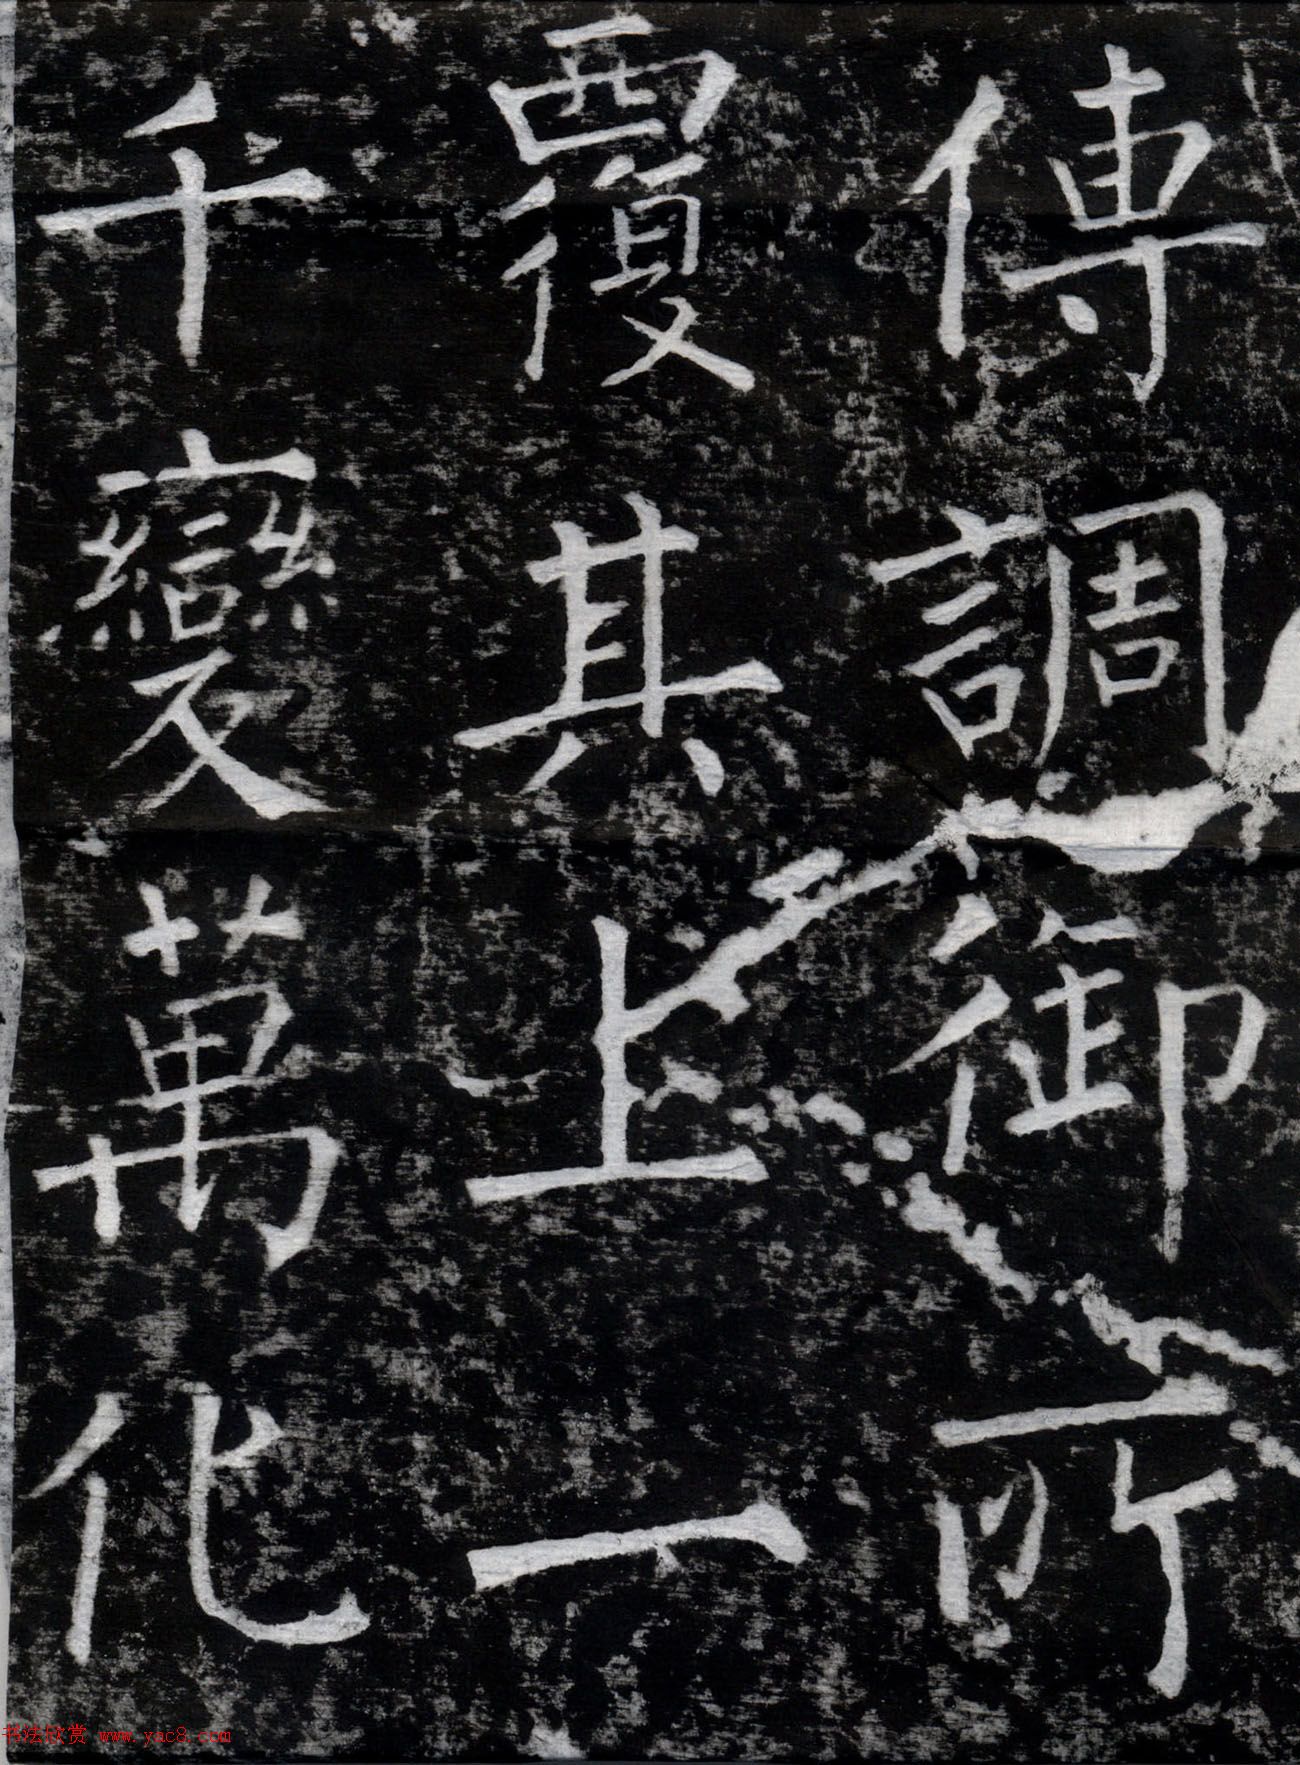 傳調御所
覆其上一
千變萬化
书法欣赏 www.yac8.com